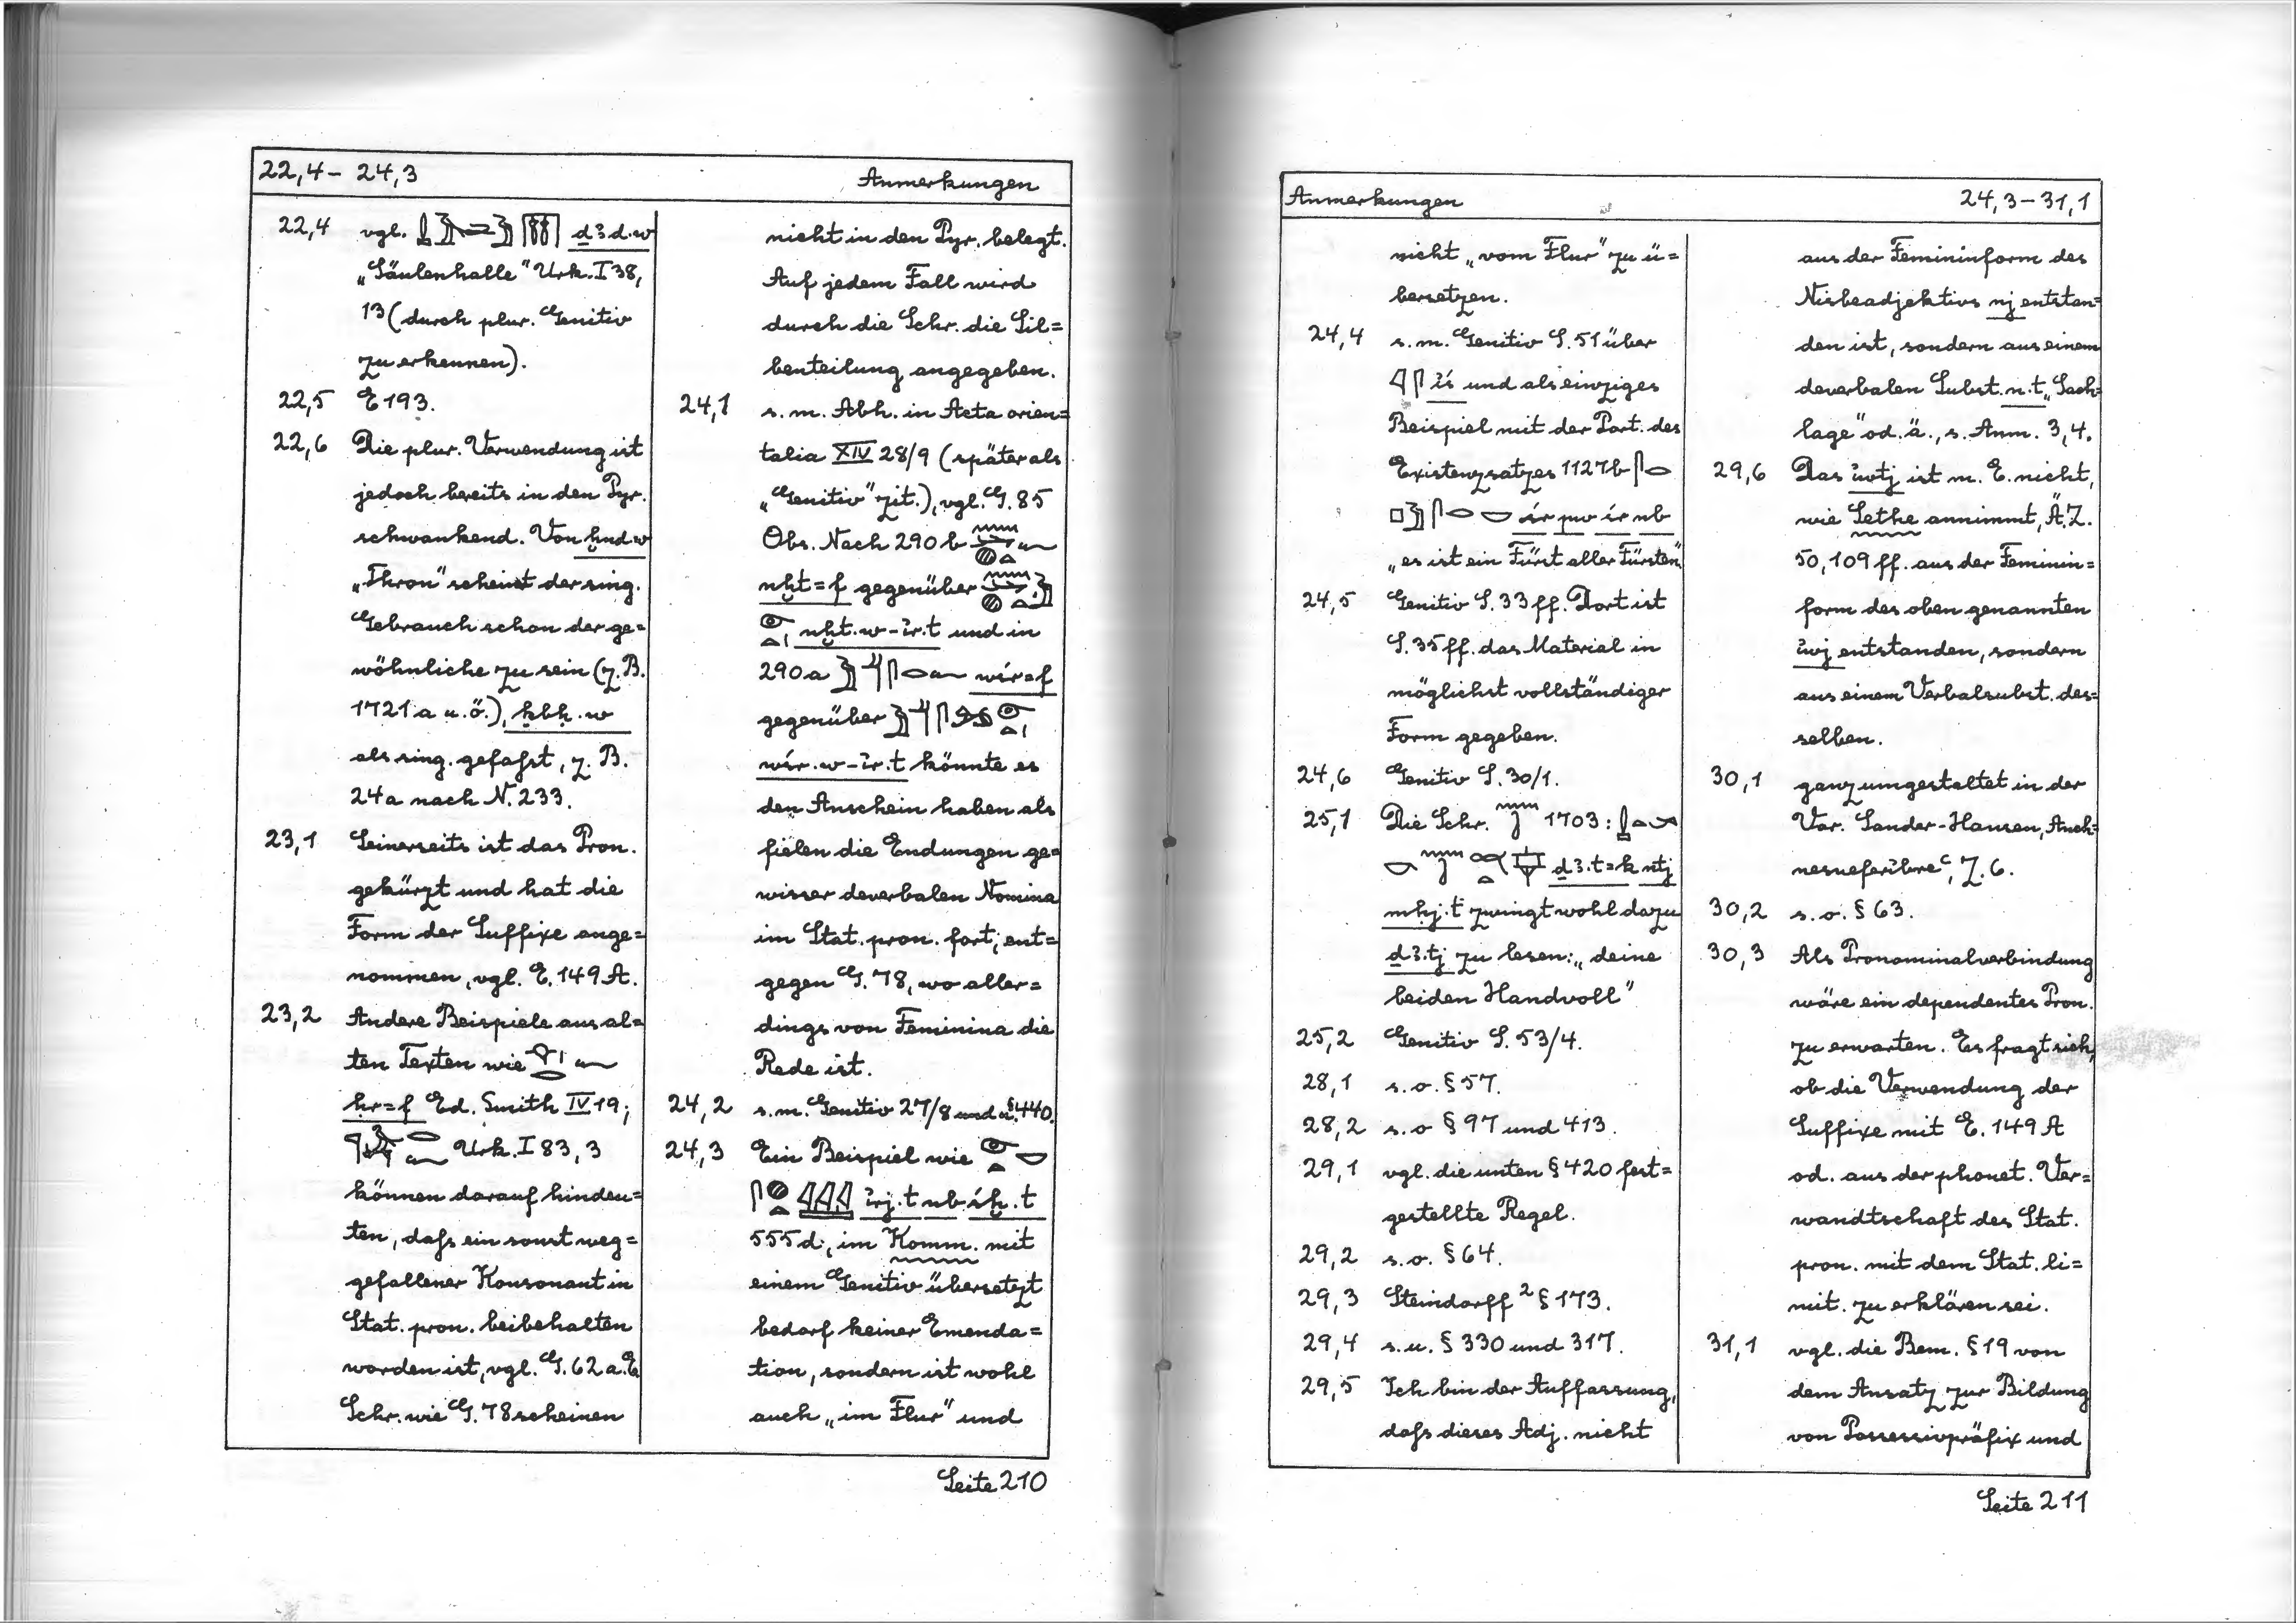 22,4 – 24,3 Anmerkungen
22,4 vgl. ḏꜣd.w
„Säulenhalle" Urk. I 38,
13 (durch plur. Genitiv
zu erkennen).
22,5 E 193.
22,6 Die plur. Verwendung ist
jedoch bereits in den Pyr.
schwankend. Von ḫnd.w
„Thron" scheint der sing.
Gebrauch schon der ge=
wöhnliche zu sein (z. B.
1721 a u. ö.), ḳbḥ.w
als sing. gefaßt, z. B.
24a nach N. 233.
23,1 Seinerseits ist das Pron.
gekürzt und hat die
Form der Suffixe ange=
nommen, vgl. E. 149 A.
23,2 Andere Beispiele aus al=
ten Texten wie
ḥr=f Ed. Smith IV 19;
Urk. I 83, 3
können darauf hindeu=
ten, daß ein sonst weg=
gefallener Konsonant in
Stat. pron. beibehalten
worden ist, vgl. G. 62 a. E
Schr. wie G. 78 scheinen
nicht in den Pyr. belegt.
Auf jedem Fall wird
durch die Schr. die Sil=
benteilung angegeben.
24,1 s. m. Abh. in Acta orien=
talia XIV 28/9 (später als
„Genitiv" zit.), vgl. G. 85
Obs. Nach 290 b
nḫt=f gegenüber
nḫt.w-ỉr.t und in
290 a wśr=f
gegenüber
wśr.w-ỉr.t könnte es
den Anschein haben als
fielen die Endungen ge=
wisser deverbalen Nomina
im Stat. pron. fort, ent=
gegen G. 78, wo aller=
dings von Feminina die
Rede ist.
24,2 s. m. Genitiv 27/8 und u. § 440.
24,3 Ein Beispiel wie
ỉrj.t nb śḫ.t
555 d, im Komm. mit
einem Genitiv übersetzt
bedarf keiner Emenda=
tion, sondern ist wohl
auch „im Flur" und
Seite 210
Anmerkungen 24,3 – 31,1
nicht „vom Flur" zu ü=
bersetzen.
24,4 s. m. Genitiv S. 51 über
ỉś und als einziges
Beispiel mit der Part. des
Existenzsatzes 1127b
śr pw śr nb
„es ist ein Fürst aller Fürsten"
24,5 Genitiv S. 33 ff. Dort ist
S. 35 ff. das Material in
möglichst vollständiger
Form gegeben.
24,6 Genitiv S. 30/1.
25,1 Die Schr. 1703:
ḏꜣ.t=k ntj
mḥj.t zwingt wohl dazu
ḏꜣ.tj zu lesen: „deine
beiden Handvoll"
25,2 Genitiv S. 53/4.
28,1 s. o. § 57.
28,2 s. o § 97 und 413.
29,1 vgl. die unten § 420 fest=
gestellte Regel.
29,2 s. o. § 64.
29,3 Steindorff ² § 173.
29,4 s. u. § 330 und 317.
29,5 Ich bin der Auffassung,
daß dieses Adj. nicht
aus der Femininform des
Nisbeadjektivs nj entstan=
den ist, sondern aus einem
deverbalen Subst. n.t „Sach=
lage" od. ä., s. Anm. 3,4.
29,6 Das ỉwtj ist m. E. nicht,
wie Sethe annimmt, Ä. Z.
50, 109 ff. aus der Feminin=
form des oben genannten
ỉwj entstanden, sondern
aus einem Verbalsubst. des=
selben.
30,1 ganz umgestaltet in der
Var. Sander-Hansen, Anch=
nesneferibreᶜ, Z. 6.
30,2 s. o. § 63.
30,3 Als Pronominalverbindung
wäre ein dependentes Pron.
zu erwarten. Es fragt sich,
ob die Verwendung der
Suffixe mit E. 149 A
od. aus der phonet. Ver=
wandtschaft des Stat.
pron. mit dem Stat. li=
mit. zu erklären sei.
31,1 vgl. die Bem. § 19 von
dem Ansatz zur Bildung
von Possessivpräfix und
Seite 211